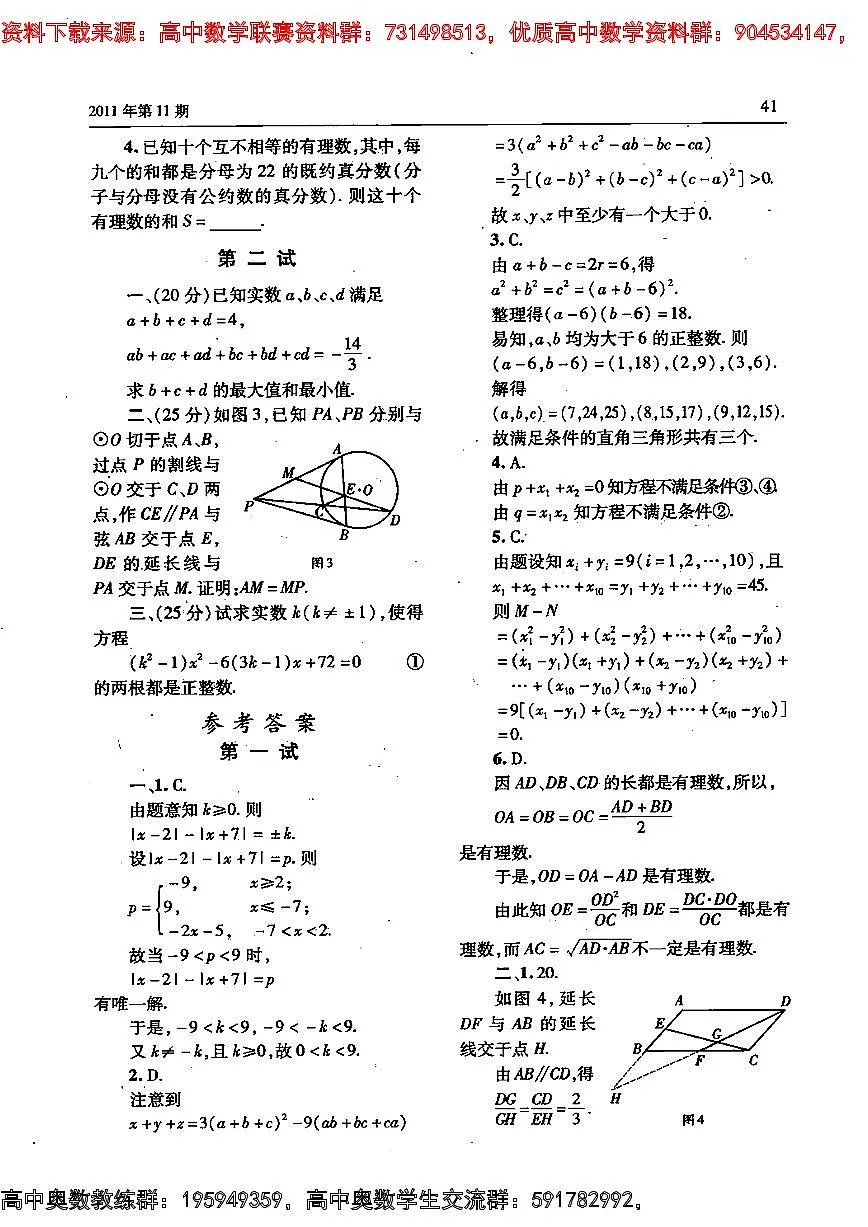 资料下载来源：高中数学联赛资料群：731498513，优质高中数学资料群：904534147，
2011年第11期
41
4.已知十个互不相等的有理数,其中,每
九个的和都是分母为22的既约真分数(分
子与分母没有公约数的真分数).则这十个
有理数的和S=______.
第二试
一、(20分)已知实数a、b、c、d满足
a+b+c+d=4,
ab+ac+ad+bc+bd+cd=-14/3.
求b+c+d的最大值和最小值.
二、(25分)如图3,已知PA、PB分别与
⊙O切于点A、B,
过点P的割线与
⊙O交于C、D两
点,作CE∥PA与
弦AB交于点E,
DE的延长线与
A
M
E·O
P
C
D
B
图3
PA交于点M.证明:AM=MP.
三、(25分)试求实数k(k≠±1),使得
方程
(k²-1)x²-6(3k-1)x+72=0 ①
的两根都是正整数.
参考答案
第一试
一、1.C.
由题意知k≥0.则
|x-2|-|x+7|=±k.
设|x-2|-|x+7|=p.则
p={-9, x≥2;
9, x≤-7;
-2x-5, -7<x<2.
故当-9<p<9时,
|x-2|-|x+7|=p
有唯一解.
于是,-9<k<9,-9<-k<9.
又k≠-k,且k≥0,故0<k<9.
2.D.
注意到
x+y+z=3(a+b+c)²-9(ab+bc+ca)
=3(a²+b²+c²-ab-bc-ca)
=3/2[(a-b)²+(b-c)²+(c-a)²]>0.
故x、y、z中至少有一个大于0.
3.C.
由a+b-c=2r=6,得
a²+b²=c²=(a+b-6)².
整理得(a-6)(b-6)=18.
易知,a、b均为大于6的正整数.则
(a-6,b-6)=(1,18),(2,9),(3,6).
解得
(a,b,c)=(7,24,25),(8,15,17),(9,12,15).
故满足条件的直角三角形共有三个.
4.A.
由p+x₁+x₂=0知方程不满足条件③、④.
由q=x₁x₂知方程不满足条件②.
5.C.
由题设知xᵢ+yᵢ=9(i=1,2,…,10),且
x₁+x₂+…+x₁₀=y₁+y₂+…+y₁₀=45.
则M-N
=(x₁²-y₁²)+(x₂²-y₂²)+…+(x₁₀²-y₁₀²)
=(x₁-y₁)(x₁+y₁)+(x₂-y₂)(x₂+y₂)+
…+(x₁₀-y₁₀)(x₁₀+y₁₀)
=9[(x₁-y₁)+(x₂-y₂)+…+(x₁₀-y₁₀)]
=0.
6.D.
因AD、DB、CD的长都是有理数,所以,
OA=OB=OC=(AD+BD)/2
是有理数.
于是,OD=OA-AD是有理数.
由此知OE=OD²/OC和DE=DC·DO/OC都是有
理数,而AC=√AD·AB不一定是有理数.
二、1.20.
如图4,延长
DF与AB的延长
线交于点H.
由AB∥CD,得
DG/GH=CD/EH=2/3.
A
D
E
G
B
F
C
H
图4
高中奥数教练群：195949359，高中奥数学生交流群：591782992，